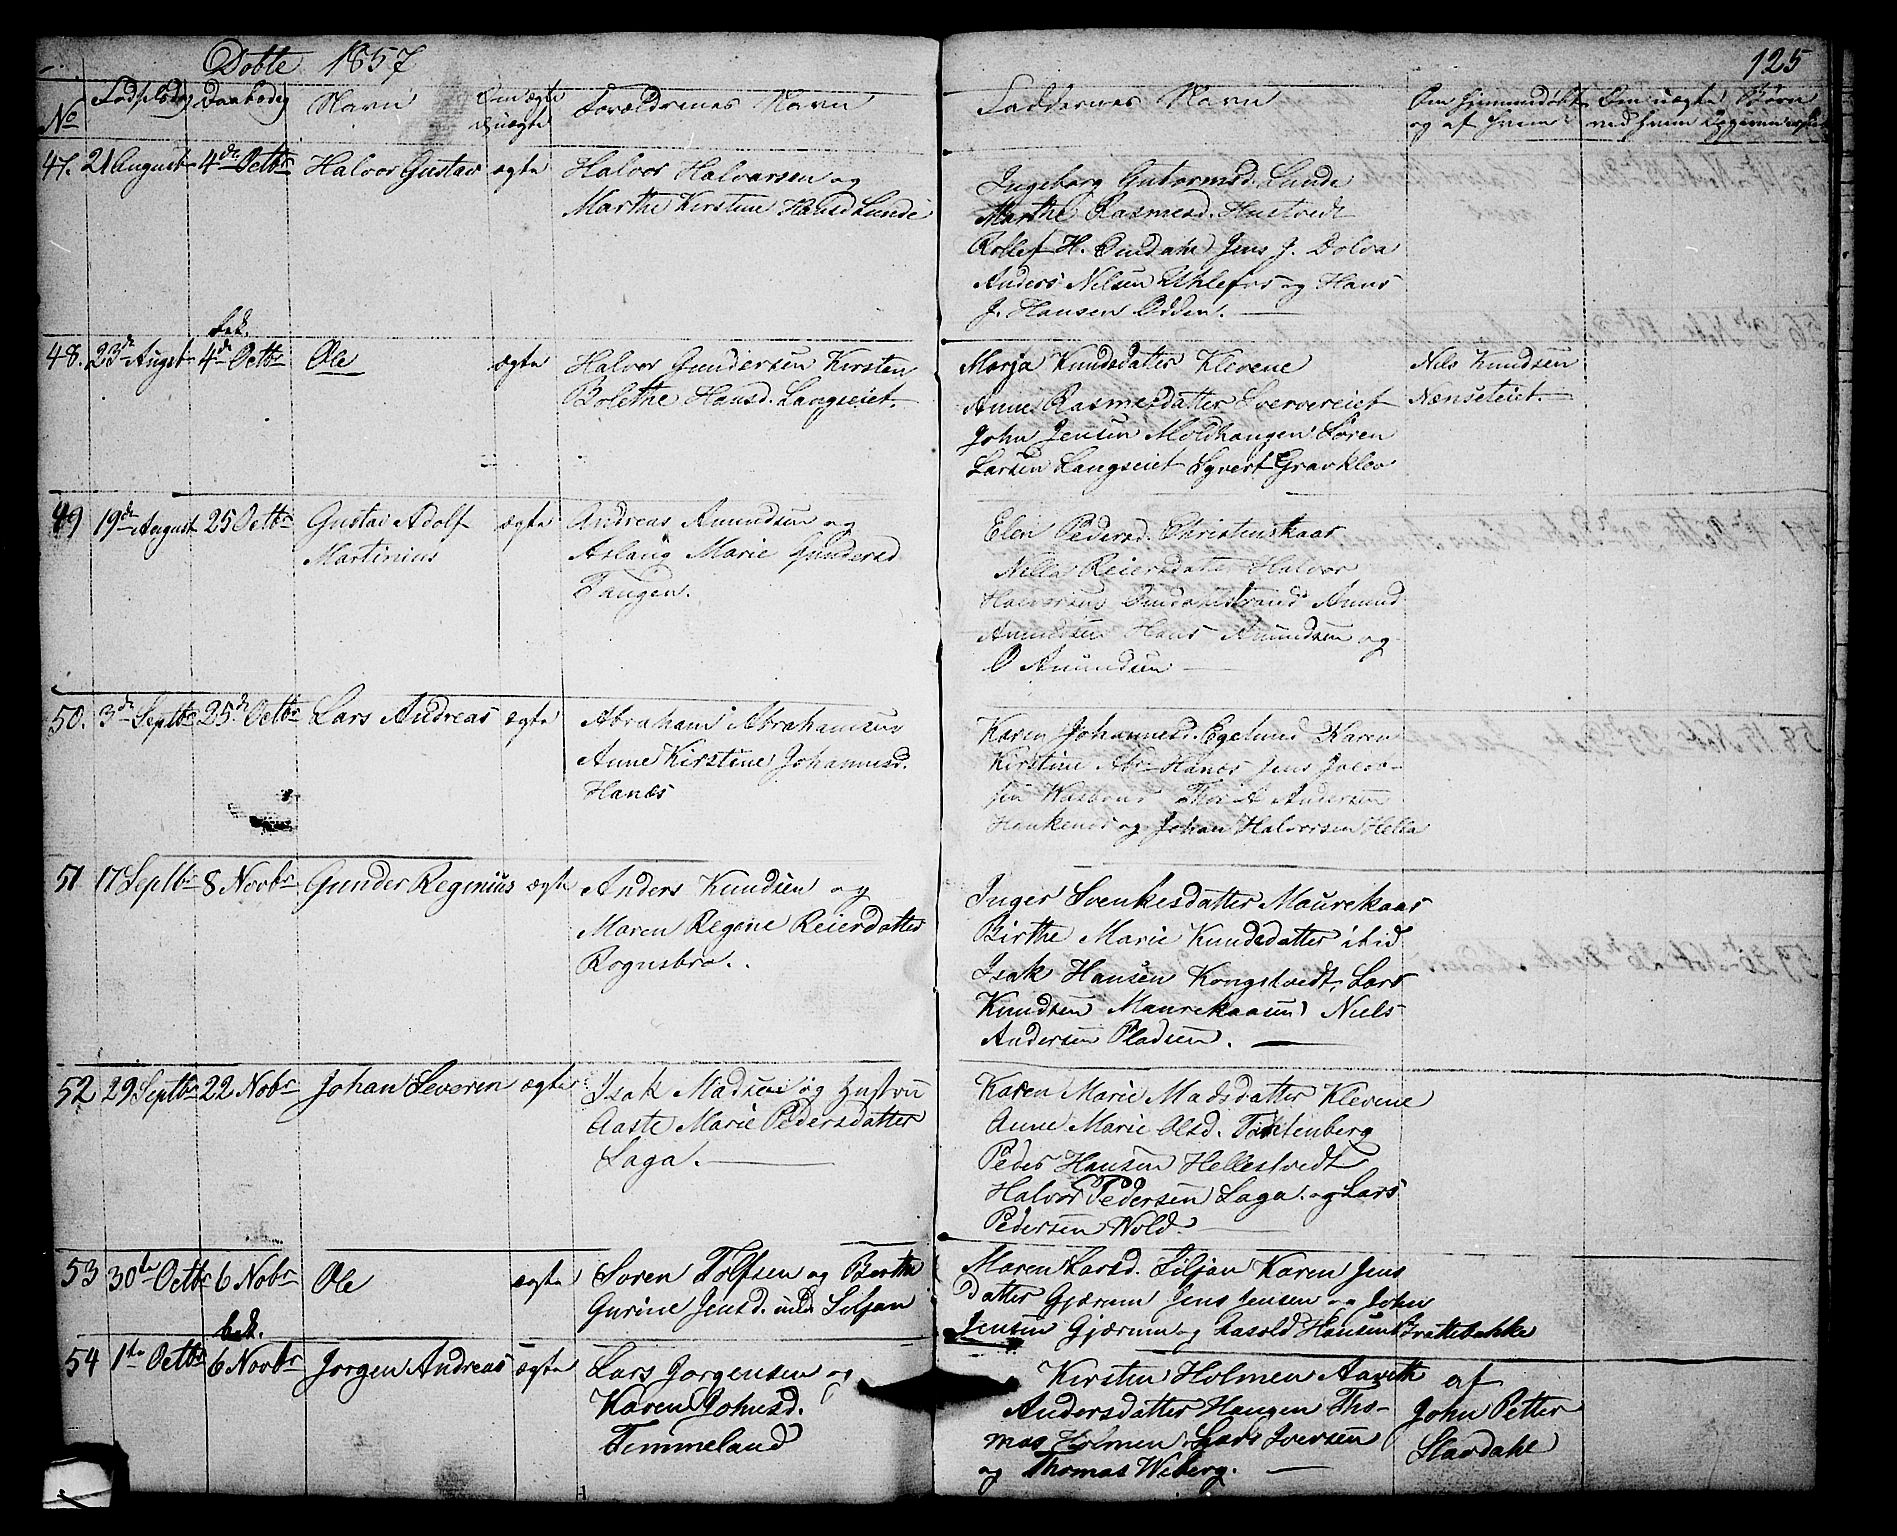 Døbte 1857
125
No Fødselsdag Daabsdag Navn Om ægte Forældrenes Navn Faddernes Navn Om hjemmedøbt Om uægte Børn
og af hvem ved hvem
47. 21 August 4de Octbr Halvor Gustav ægte Halvor Halvorsen og
Marthe Kirstine Hansd Lunde
Ingeborg Gutormsd. Lunde
Marthe Rasmusd. Hustvedt
Rollef H. Omdahl Jens J. Dolva
Anders Nilsen Uhlefos og Hans
J. Hansen Odden.
bek.
48. 23de August 4de Octbr Ole ægte Halvor Gundersen Kirsten
Bolethe Hansd. Langseiet.
Marja Knudsdatter Klevene
Anne Rasmusdatter
John Jensen Moldhaugen Søren
Larsen Langseiet Syvert Gravklev
Nils Knudsen
Nænseteiet.
49 19de August 25 Octbr Gustav Adolf
Martinius
ægte Andreas Amundsen og
Aslaug Marie Gundersd
Tangen.
Elen Pedersd. Christenskaas
Nilla Reiersdatter Halvor
Halvorsen Omdalsstrand Amund
Amundsen Hans Amundsen og
O Amundsen
50. 3de Septbr 25de Octbr Lars Andreas ægte Abraham Abrahamsen
Anne Kirstine Johannesd.
Hanæs
Karen Johannesd. Egelund Karen
Kirstine Abr Hanæs Jens Jacob-
sen Thor A Andersen
og Johan Halvorsen Hella
51 17 Septbr 8 Novbr Gunder Reginius ægte Anders Knudsen og
Maren Regine Reierdatter
Rognsbro.
Inger Svenkesdatter Maurekaas
Birthe Marie Knudsdatter ibid
Isak Hansen Kongstvedt, Lars
Knudsen Maurekaasen Niels
Andersen Pladsen.
52 29 Septbr 22 Nobr Johan Severin ægte Isak Madsen og Hustru
Aaste Marie Pedersdatter
Laga.
Karen Marie Madsdatter Klevene
Anne Marie Olsd.
Peder Hansen Hellestvedt
Halvor Pedersen Laga. og Lars
Pedersen Vold.
53 30te Octbr 6 Nobr Ole ægte Søren Tolfsen og Berthe
Gurine Jensd. Siljan
Maren Larsd. Siljan Karen Jens
datter Gjærum Jens Jensen og John
Jensen Gjærum og Hansen Brattebakke
bek.
54 1te Octbr 6 Novbr Jørgen Andreas ægte Lars Jørgensen og
Karen Johnsd.
Timmeland
Kirsten Holmen
Andersdatter Haugen Tho-
mas Holmen Lars Iversen
og Thomas Wiberg.
af
John Petter
Slardahl